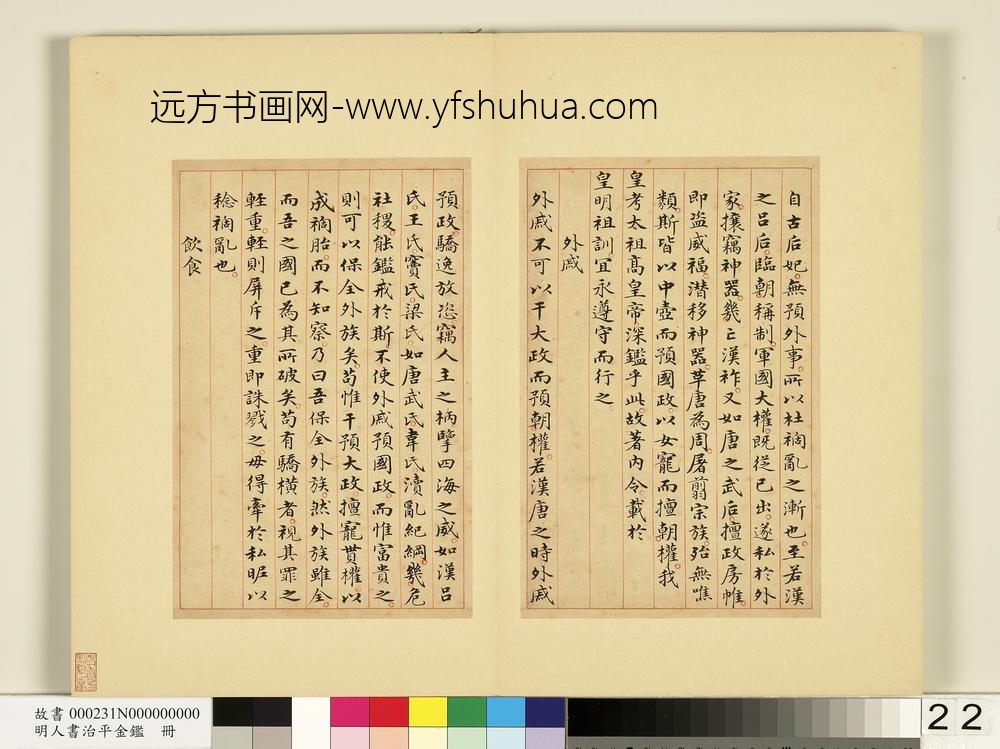 远方书画网-www.yfshuhua.com
自古后妃無預外事所以杜禍亂之漸也至若漢
之呂后臨朝稱制軍國大權既從已出遂私於外
家攘竊神器幾亡漢祚又如唐之武后擅政房帷
即盜威福潜移神器革唐為周屠翦宗族殆無噍
類斯皆以中壼而預國政以女寵而擅朝權我
皇考太祖高皇帝深鑑乎此故著內令載於
皇明祖訓宜永遵守而行之
外戚
外戚不可以干大政而預朝權若漢唐之時外戚
預政驕逸放恣竊人主之柄擥四海之威如漢呂
氏王氏竇氏梁氏如唐武氏韋氏瀆亂紀綱幾危
社稷能鑑戒於斯不使外戚預國政而惟富貴之
則可以保全外族矣苟惟干預大政擅寵貫權以
成禍胎而不知察乃曰吾保全外族然外族雖全
而吾之國已為其所破矣苟有驕橫者視其罪之
輕重輕則屏斥之重即誅戮之毋得牽於私昵以
稔禍亂也
飲食
故書 000231N000000000
明人書治平金鑑 冊
22